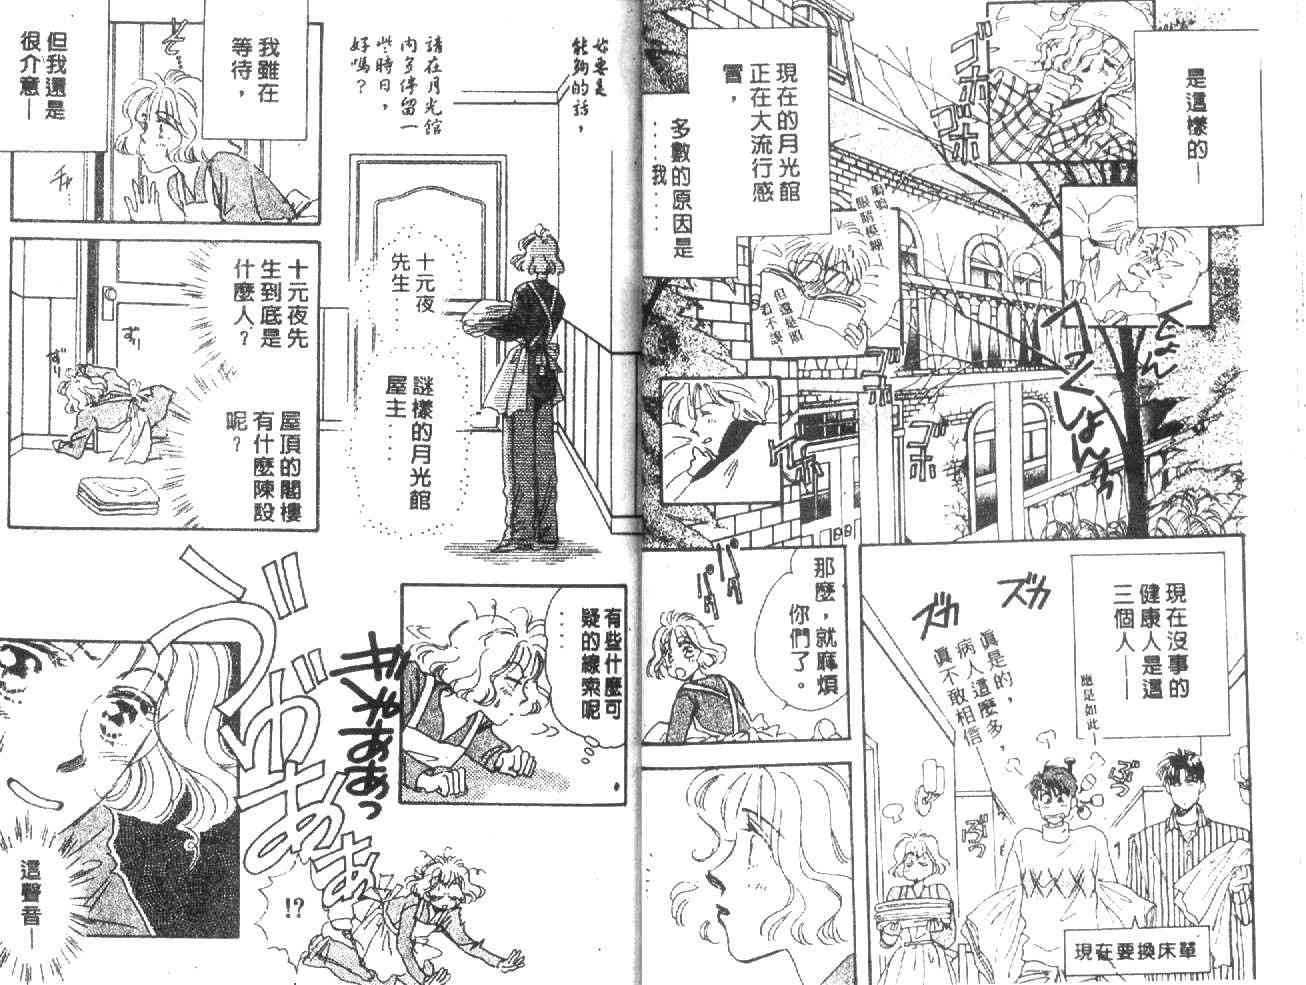 是這樣的—
ゴホ
ゴホ
ゴホ
現在的月光館
正在大流行感
冒，
多數的原因是
……我……
嗚嗚
眼睛模糊—
但還是照
看不誤—
へっくしょんっ
ゴホ
ゴホ
ゴホ
現在沒事的
健康人是這
三個人——
應是如此—
ズカ
ズカ
真是的，
病人這麼多，
真不敢相信
ぶつ
ぶつ
現在要換床單
那麼，就麻煩
你們了。
パタ
パタ
妳要是
能夠的話，
請在月光館
內多停留一
些時日，
好嗎？
十元夜
先生……
謎樣的月光館
屋主……
我雖在
等待，
但我還是
很介意—
十元夜先
生到底是
什麼人？
屋頂的閣樓
有什麼陳設
呢？
ずり
ずり
有些什麼可
疑的線索呢
……
ギャああっ
!?
這聲音—